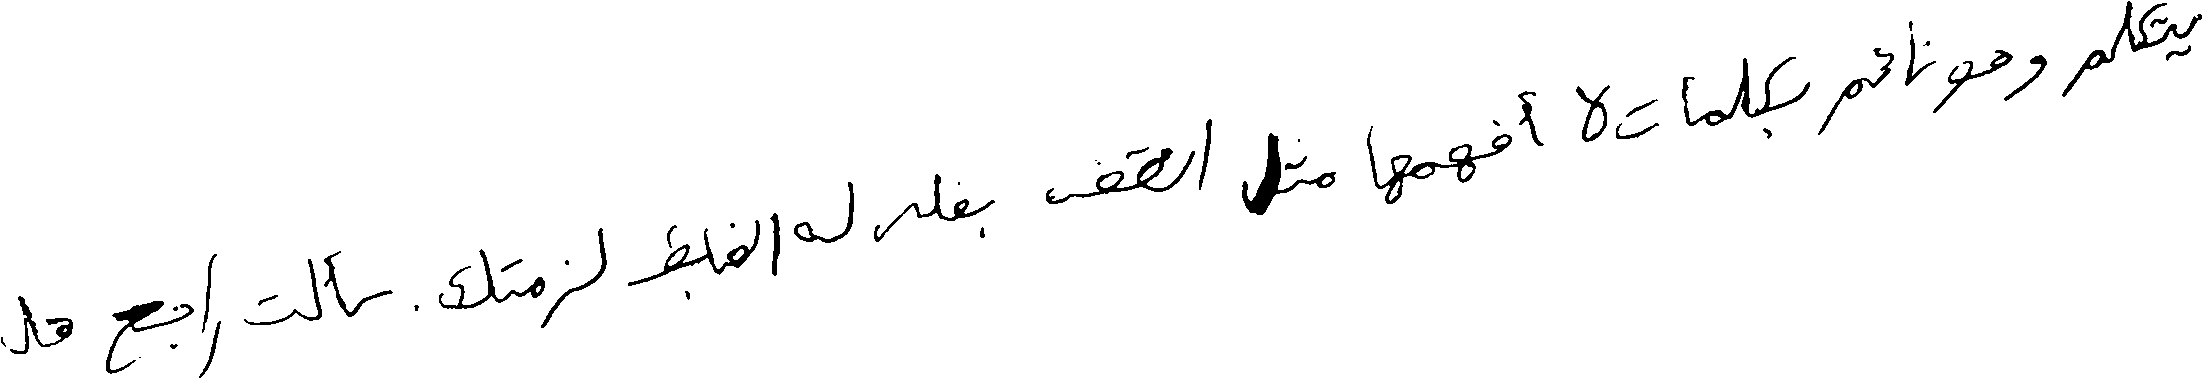 يتكلم وهو نائم بكلمات لا أفهمها مثل القصف بغارله الضابط لزمتك. سألت راجح هل